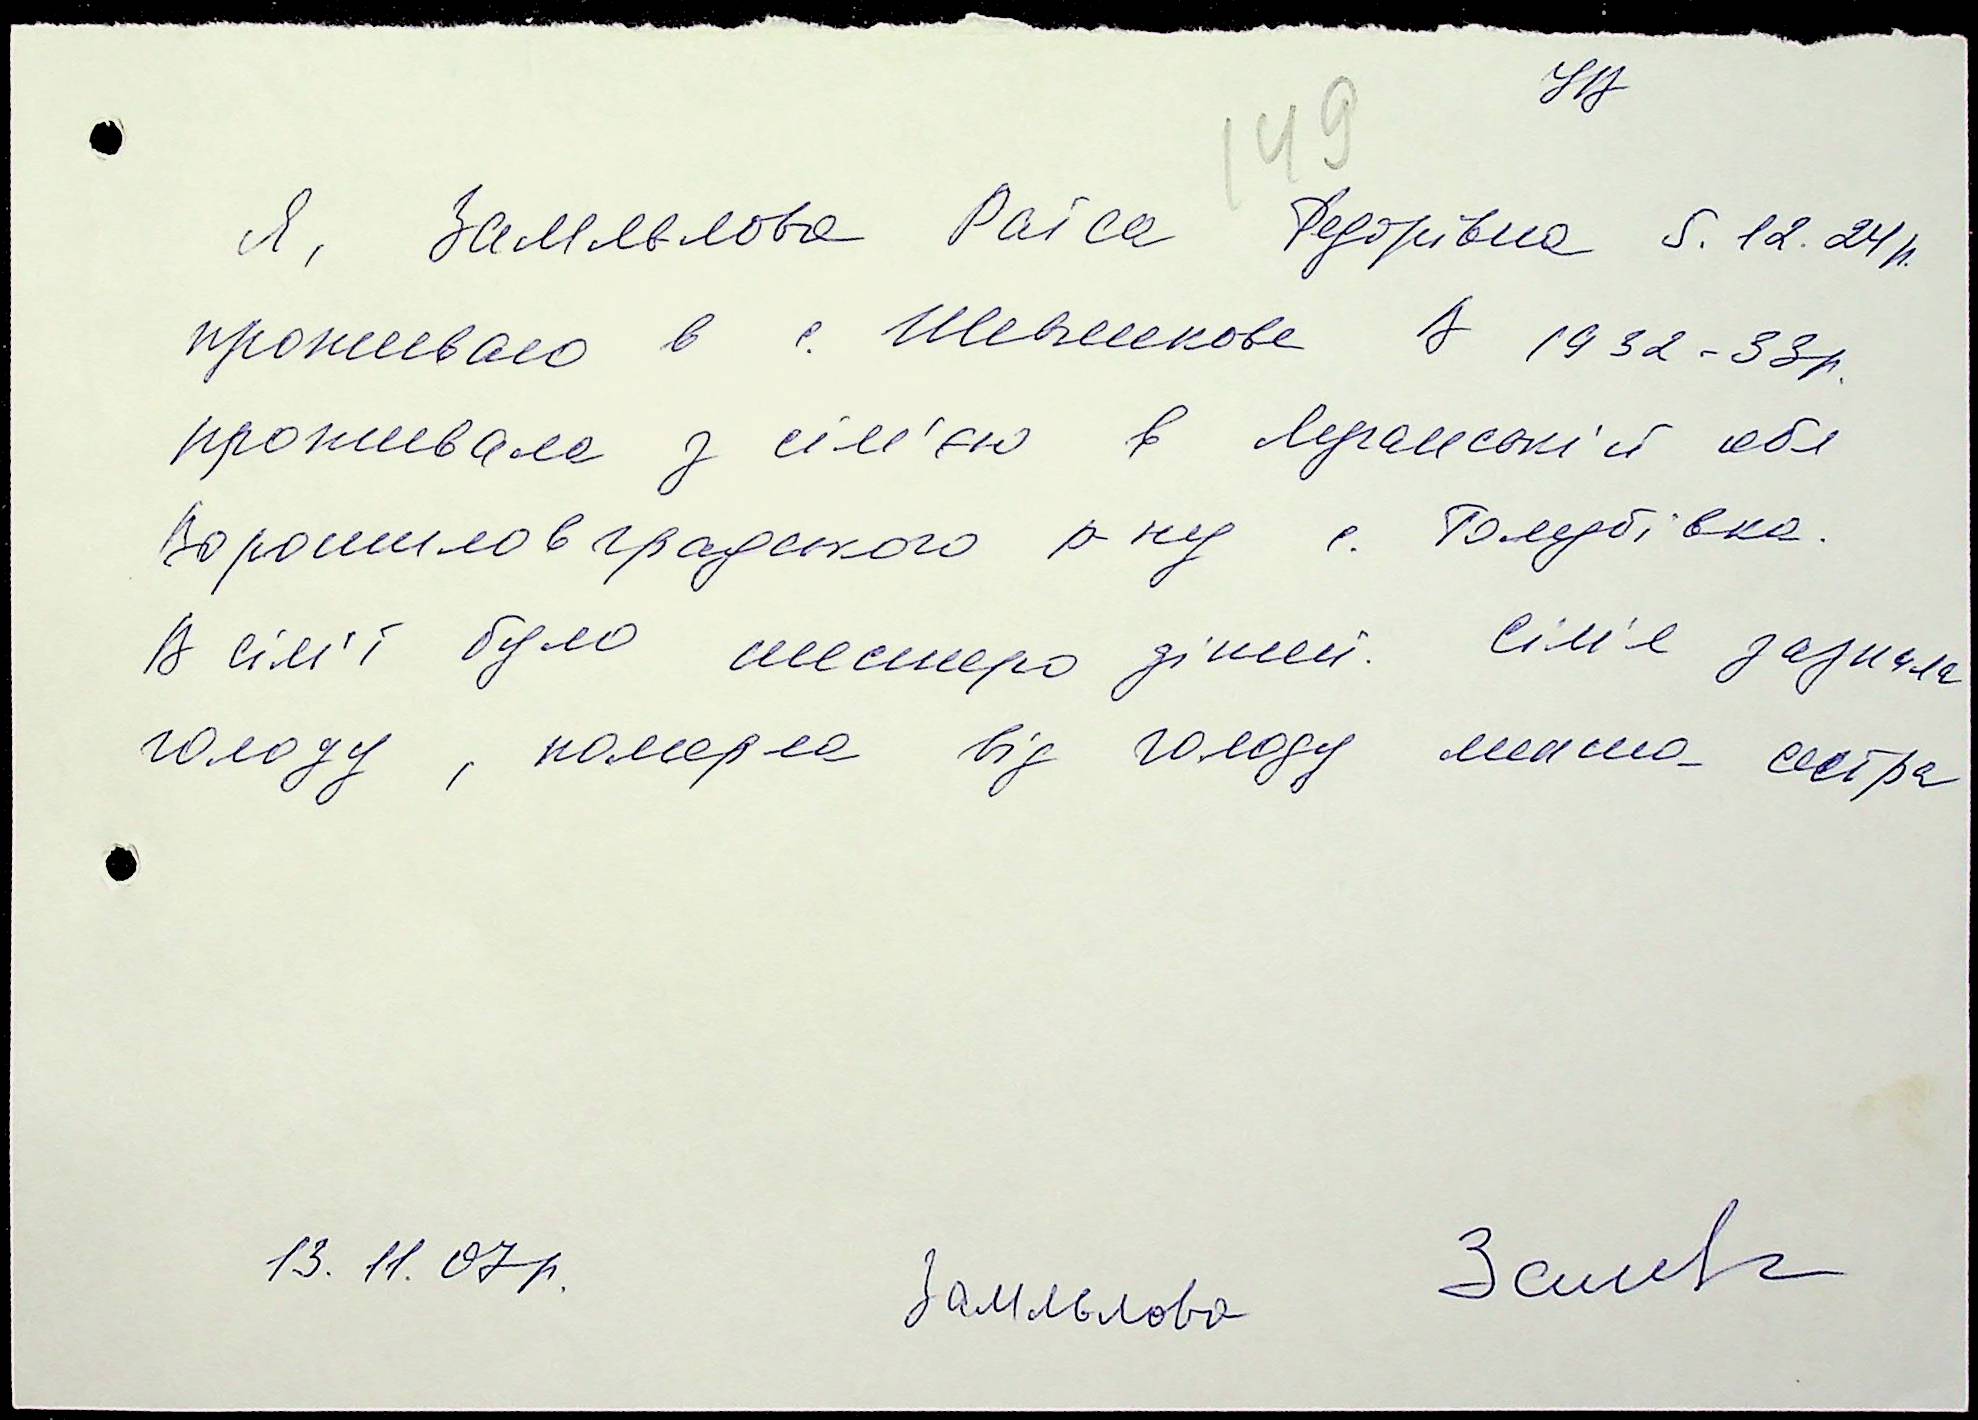 149
Я, Замльлова Раїса Федорівна 5.12.24р.
проживаю в с. Шевченкове В 1932-33р.
проживала з сім'єю в Луганській обл
Ворошиловградського р-ну с. Голубівка.
В сім'ї було шестеро дітей. Сім'я зазнала
голоду, померла від голоду менша сестра
13.11.07р. Замльлова